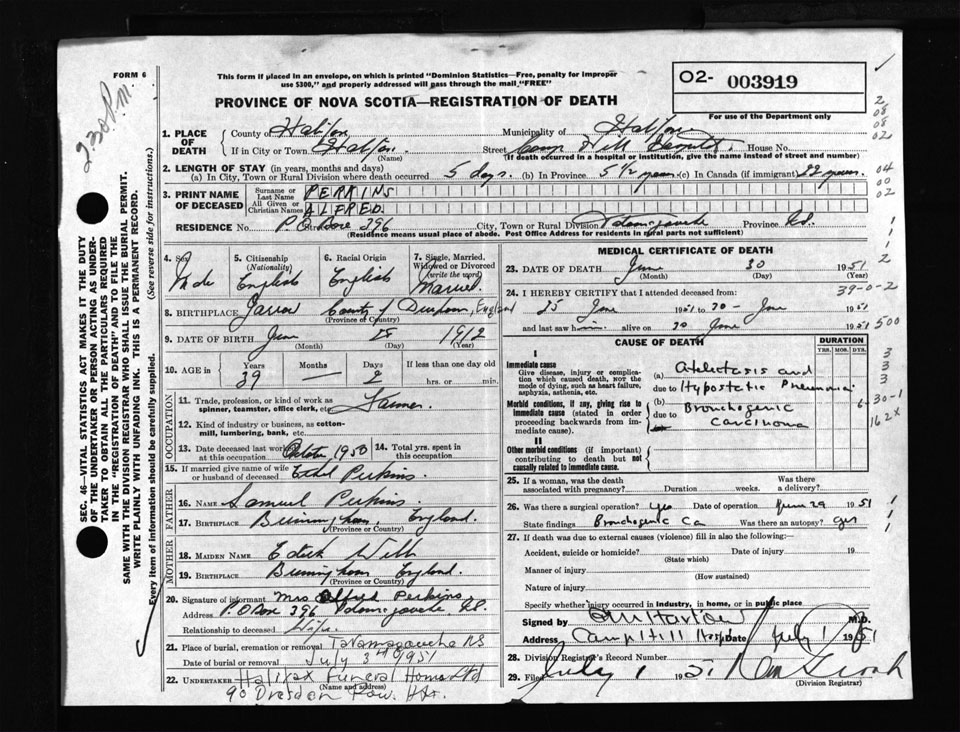 FORM 6
This form if placed in an envelope, on which is printed "Dominion Statistics—Free, penalty for improper
use $300," and properly addressed will pass through the mail "FREE"
O2- 003919
For use of the Department only
PROVINCE OF NOVA SCOTIA—REGISTRATION OF DEATH
2 30 P.M.
SEC. 46—VITAL STATISTICS ACT MAKES IT THE DUTY
OF THE UNDERTAKER OR PERSON ACTING AS UNDER-
TAKER TO OBTAIN ALL THE PARTICULARS REQUIRED
IN THE "REGISTRATION OF DEATH" AND TO FILE THE
SAME WITH THE DIVISION REGISTRAR WHO SHALL ISSUE THE BURIAL PERMIT.
WRITE PLAINLY WITH UNFADING INK. THIS IS A PERMANENT RECORD.
Every item of information should be carefully supplied. (See reverse side for instructions.)
1. PLACE OF DEATH County of Halifax Municipality of Halifax
If in City or Town Halifax (Name) Street Camp Hill Hospital House No.
(If death occurred in a hospital or institution, give the name instead of street and number)
2. LENGTH OF STAY (in years, months and days)
(a) In City, Town or Rural Division where death occurred 5 days. (b) In Province 5 1/2 years (c) In Canada (if immigrant) 22 years.
3. PRINT NAME OF DECEASED Surname or Last Name PERKINS
All Given or Christian Names ALFRED
RESIDENCE No. P.O. Box 396 City, Town or Rural Division Tatamagouche Province N.S.
(Residence means usual place of abode. Post Office Address for residents in rural parts not sufficient)
4. Sex Male
5. Citizenship (Nationality) English
6. Racial Origin English
7. Single, Married, Widowed or Divorced (write the word) Married
8. BIRTHPLACE Jarrow County of Durham, England
(Province or Country)
9. DATE OF BIRTH June 28 1912
(Month) (Day) (Year)
10. AGE in Years 39 Months — Days 2 If less than one day old
hrs. or min.
OCCUPATION
11. Trade, profession, or kind of work as
spinner, teamster, office clerk, etc. Farmer
12. Kind of industry or business, as cotton-
mill, lumbering, bank, etc.
13. Date deceased last worked at this occupation October 1950 14. Total yrs. spent in this occupation
15. If married give name of wife or husband of deceased Ethel Perkins
FATHER
16. NAME Samuel Perkins
17. BIRTHPLACE Birmingham, England.
(Province or Country)
MOTHER
18. MAIDEN NAME Edith
19. BIRTHPLACE Birmingham England.
(Province or Country)
20. Signature of informant Mrs Alfred Perkins
Address P.O Box 396 Tatamagouche N.S.
Relationship to deceased Wife
21. Place of burial, cremation or removal Tatamagouche NS
Date of burial or removal July 3rd 1951
22. UNDERTAKER Halifax Funeral Home Ltd
(Name and address)
90 Dresden Row. Hfx.
MEDICAL CERTIFICATE OF DEATH
23. DATE OF DEATH June 30 1951
(Month) (Day) (Year)
39-0-2
24. I HEREBY CERTIFY that I attended deceased from:
25 June 1951 to 30 - June 1951
and last saw him alive on 30 June 1951
500
CAUSE OF DEATH
DURATION
YRS. MOS. DYS.
I
Immediate cause
Give disease, injury or complica-
tion which caused death, not the
mode of dying, such as heart failure,
asphyxia, asthenia, etc.
(a) Atelectasis and
due to Hypostatic Pneumonia
Morbid conditions, if any, giving rise to
immediate cause (stated in order
proceeding backwards from im-
mediate cause).
(b)
due to Bronchogenic
Carcinoma
6-30-1
162X
II
Other morbid conditions (if important)
contributing to death but not
causally related to immediate cause.
25. If a woman, was the death associated with pregnancy? Duration weeks. Was there a delivery?
26. Was there a surgical operation? yes Date of operation June 29 1951
State findings Bronchogenic Ca Was there an autopsy? yes
27. If death was due to external causes (violence) fill in also the following:—
Accident, suicide or homicide? Date of injury 19
(State which)
Manner of injury
(How sustained)
Nature of injury
Specify whether injury occurred in industry, in home, or in public place
Signed by Harlow M.D.
Address Camp Hill Hosp Date July 1 1951
28. Division Registrar's Record Number
29. Filed July 1 1951
(Division Registrar)